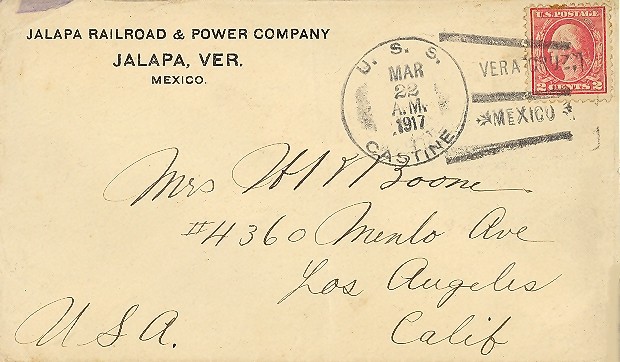 JALAPA RAILROAD & POWER COMPANY
JALAPA, VER.
MEXICO.
U. S. S.
MAR
22
A.M.
1917
CASTINE
VERA CRUZ,
MEXICO
U.S. POSTAGE
2 CENTS 2
Mrs W R Boone
#4360 Menlo Ave
Los Angeles
Calif
U.S.A.